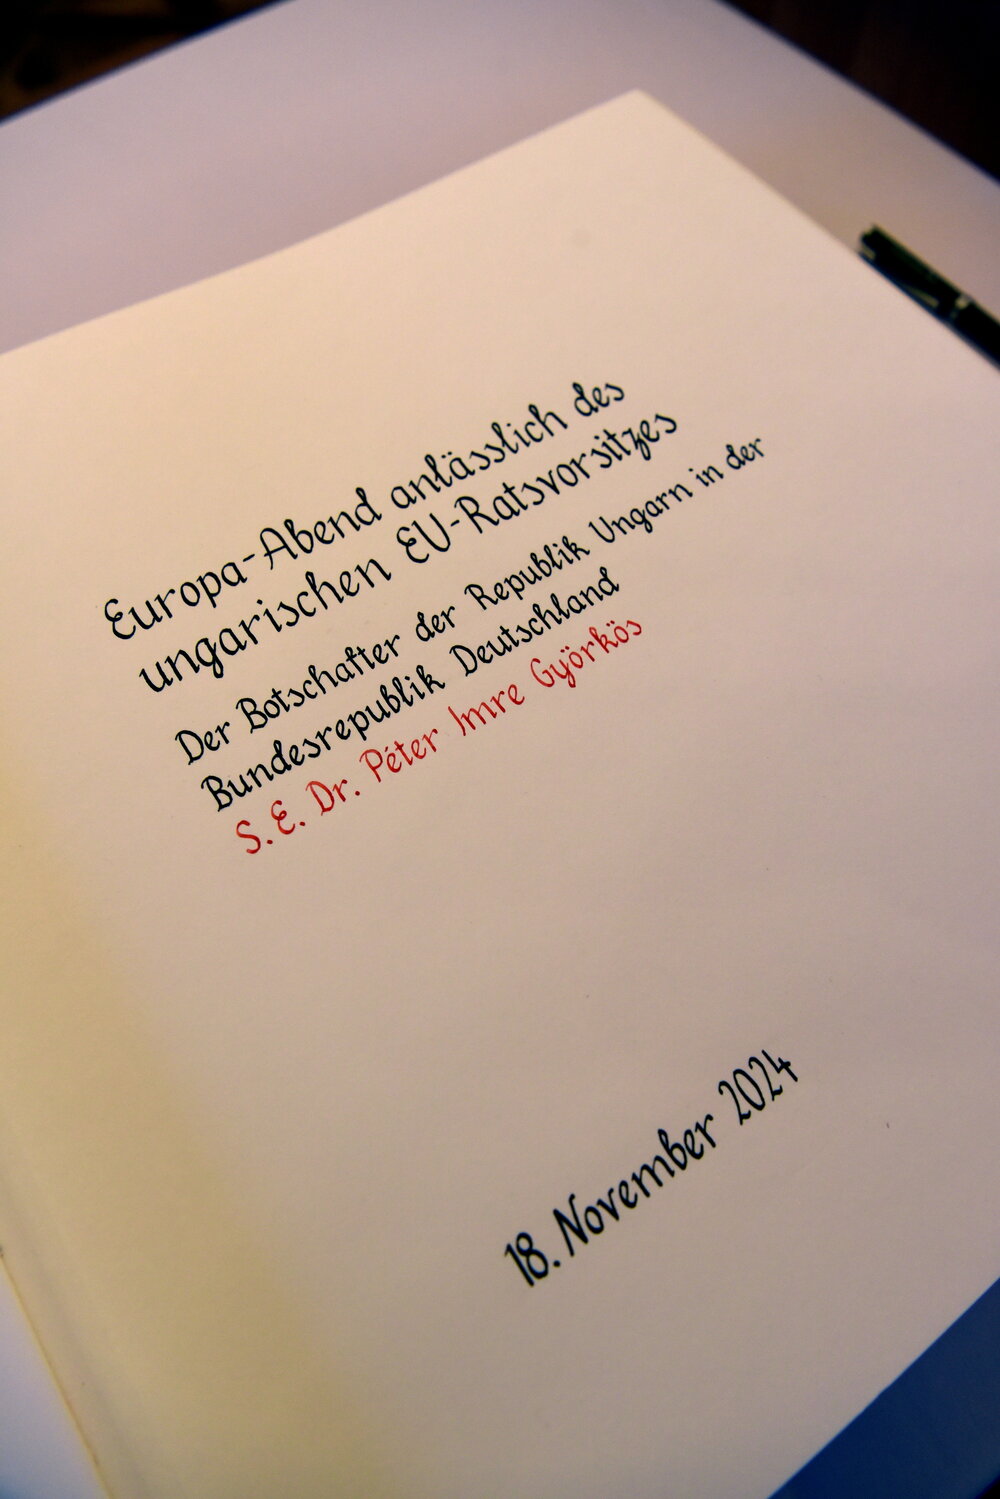 Europa-Abend anlässlich des
ungarischen EU-Ratsvorsitzes
Der Botschafter der Republik Ungarn in der
Bundesrepublik Deutschland
S. E. Dr. Péter Imre Györkös
18. November 2024